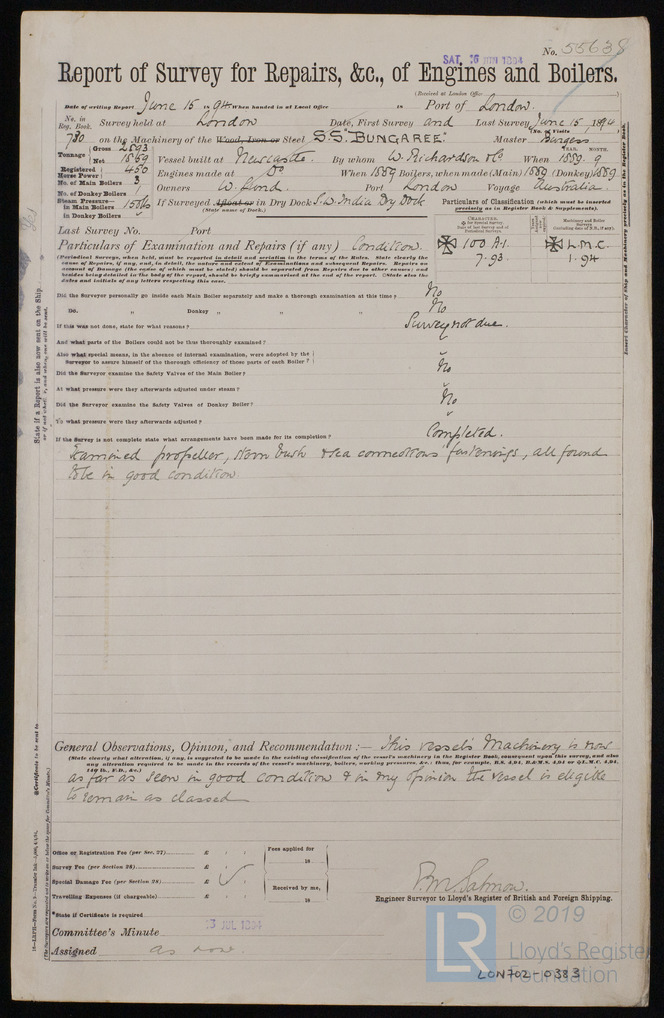 No. 55638
SAT. 16 JUN 1894
Report of Survey for Repairs, &c., of Engines and Boilers.
(Received at London Office
Date of writing Report June 15 1894 When handed in at Local Office 18 Port of London.
No. in Reg. Book. Survey held at London Date, First Survey and Last Survey June 15, 1894
(No. of Visits
780 on the Machinery of the Wood, Iron or Steel S.S. "BUNGAREE" Master Burgess
Tonnage Gross 2893
Net 1869 Vessel built at Newcastle. By whom W. Richardson & Co When 1889. 9
Registered Horse Power 450 Engines made at Do When 1889 Boilers, when made (Main) 1889 (Donkey) 1889
No. of Main Boilers 3
No. of Donkey Boilers 1 Owners W. Lund. Port London Voyage Australia.
Steam Pressure in Main Boilers 150 lbs If Surveyed Afloat or in Dry Dock S.W. India Dry Dock
in Donkey Boilers (State name of Dock.)
Particulars of Classification (which must be inserted precisely as in Register Book & Supplements).
Last Survey No. Port
Particulars of Examination and Repairs (if any) Condition.
100 A.1. L.M.C.
7.93. 1.94
(Periodical Surveys, when held, must be reported in detail and seriatim in the terms of the Rules. State clearly the
cause of Repairs, if any, and, in detail, the nature and extent of Examinations and subsequent Repairs. Repairs on
account of Damage (the cause of which must be stated) should be separated from Repairs due to other causes; and
besides being detailed in the body of the report, should be briefly summarised at the end of the report. State also the
dates and initials of any letters respecting this case.
Did the Surveyor personally go inside each Main Boiler separately and make a thorough examination at this time? No
Do. " Donkey " " " No
If this was not done, state for what reasons? Survey not due.
And what parts of the Boilers could not be thus thoroughly examined?
Also what special means, in the absence of internal examination, were adopted by the
Surveyor to assure himself of the thorough efficiency of those parts of each Boiler?
Did the Surveyor examine the Safety Valves of the Main Boiler? No
At what pressure were they afterwards adjusted under steam?
Did the Surveyor examine the Safety Valves of Donkey Boiler? No
To what pressure were they afterwards adjusted?
If the Survey is not complete state what arrangements have been made for its completion? Completed.
Examined propeller, stern bush & sea connections fastenings, all found
to be in good condition
General Observations, Opinion, and Recommendation :— This vessel's Machinery is now
(State clearly what alteration, if any, is suggested to be made in the existing classification of the vessel's machinery in the Register Book, consequent upon this survey, and also
any alteration required to be made in the records of the vessel's machinery, boilers, working pressures, &c.: thus, for example, B.S. 4,94, B.&M.S. 4,94 or L.M.C. 4,94,
140 lb., F.D., &c.)
as far as seen in good condition & in my opinion the vessel is eligible
to remain as classed
Office or Registration Fee (per Sec. 27) £ Fees applied for
Survey Fee (per Section 28) £ 18
Special Damage Fee (per Section 28) £ Received by me,
Travelling Expenses (if chargeable) £ 18
State if Certificate is required
P.M. Salmon.
Engineer Surveyor to Lloyd's Register of British and Foreign Shipping.
Committee's Minute 3 JUL 1894
Assigned as now
LR
© 2019
Lloyd's Register
Foundation
LON702-0383